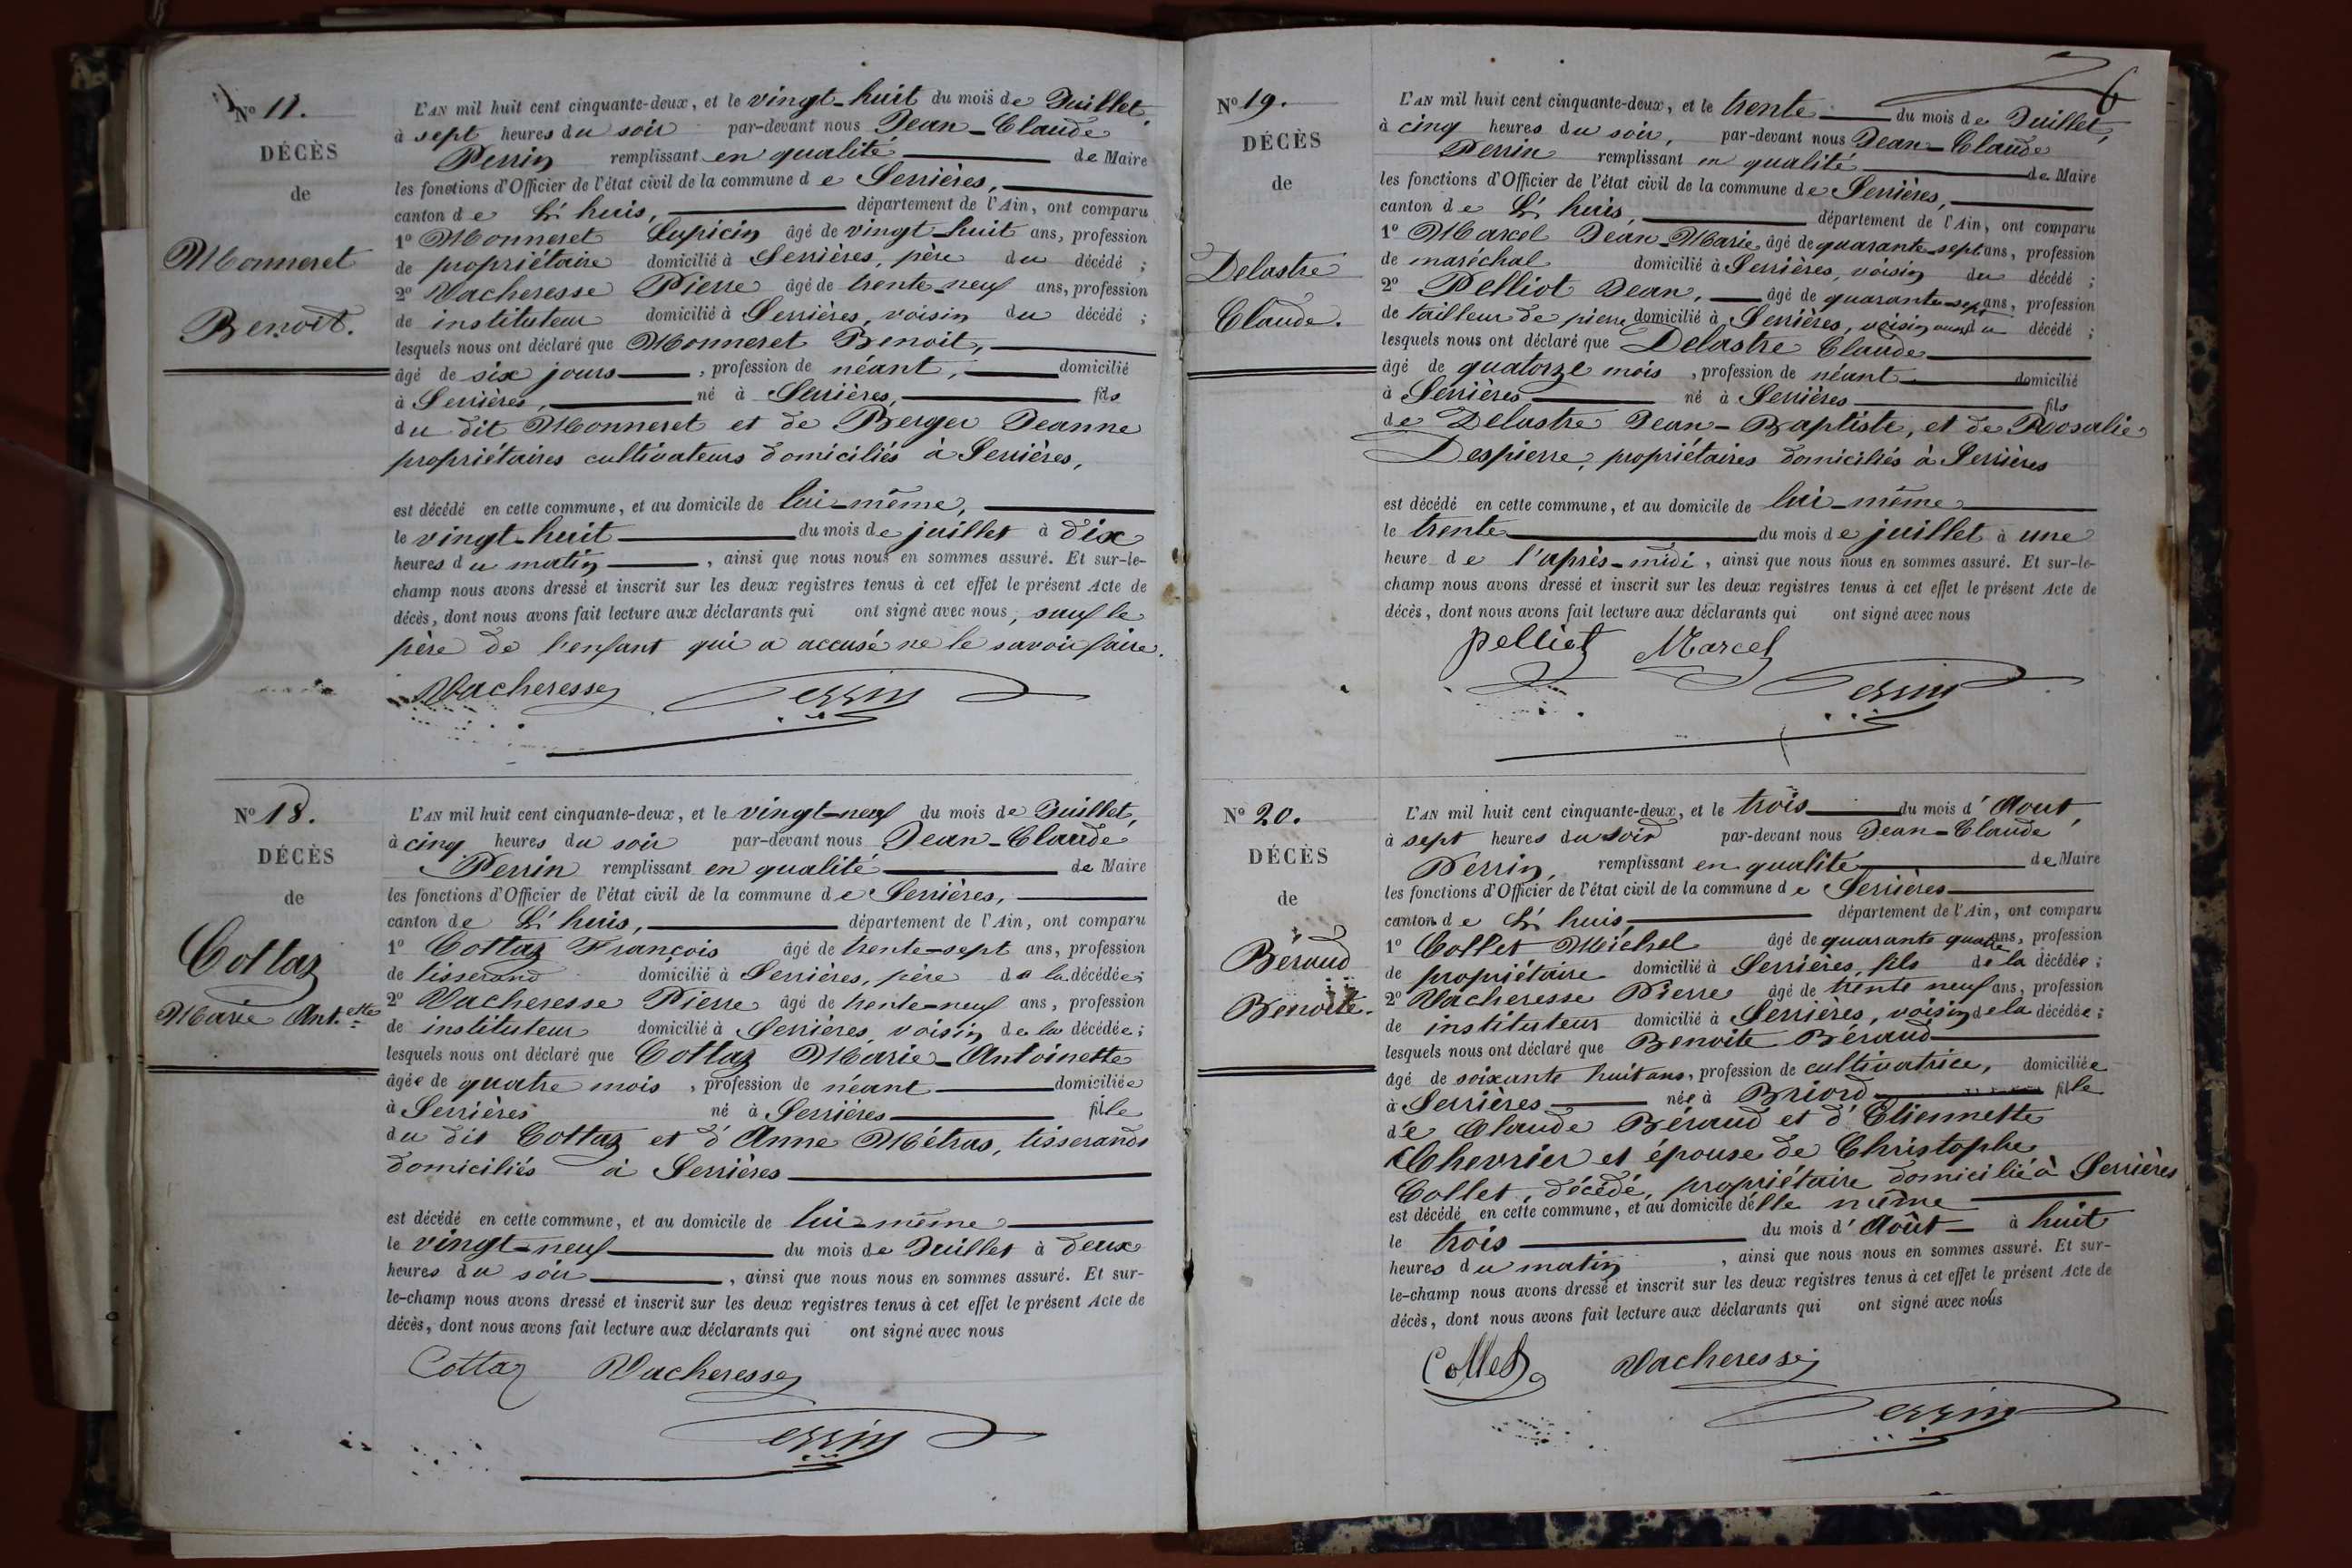 Nº 17.
DÉCÈS
de
Monneret
Benoît.
L'AN mil huit cent cinquante-deux, et le vingt-huit du mois de Juillet,
à sept heures du soir par-devant nous Jean-Claude
Perrin remplissant en qualité de Maire
les fonctions d'Officier de l'état civil de la commune de Serrières,
canton de L'huis, département de l'Ain, ont comparu
1º Monneret Lupicin âgé de vingt-huit ans, profession
de propriétaire domicilié à Serrières, père du décédé ;
2º Vacheresse Pierre âgé de trente-neuf ans, profession
de instituteur domicilié à Serrières, voisin du décédé ;
lesquels nous ont déclaré que Monneret Benoit,
âgé de six jours, profession de néant, domicilié
à Serrières, né à Serrières, fils
du dit Monneret et de Berger Jeanne
propriétaires cultivateurs domiciliés à Serrières,
est décédé en cette commune, et au domicile de lui-même,
le vingt-huit du mois de juillet à dix
heures du matin, ainsi que nous nous en sommes assuré. Et sur-le-
champ nous avons dressé et inscrit sur les deux registres tenus à cet effet le présent Acte de
décès, dont nous avons fait lecture aux déclarants qui ont signé avec nous, sauf le
père de l'enfant qui a accusé ne le savoir faire.
Vacheresse Perrin
Nº 18.
DÉCÈS
de
Cottaz
Marie Ant.ette
L'AN mil huit cent cinquante-deux, et le vingt-neuf du mois de Juillet,
à cinq heures du soir par-devant nous Jean-Claude
Perrin remplissant en qualité de Maire
les fonctions d'Officier de l'état civil de la commune de Serrières,
canton de L'huis, département de l'Ain, ont comparu
1º Cottaz François âgé de trente-sept ans, profession
de tisserand domicilié à Serrières, père de la décédée ;
2º Vacheresse Pierre âgé de trente-neuf ans, profession
de instituteur domicilié à Serrières, voisin de la décédée ;
lesquels nous ont déclaré que Cottaz Marie-Antoinette
âgée de quatre mois, profession de néant domiciliée
à Serrières né à Serrières fille
du dit Cottaz et d'Anne Métras, tisserands
domiciliés à Serrières
est décédé en cette commune, et au domicile de lui-même
le vingt-neuf du mois de Juillet à deux
heures du soir, ainsi que nous nous en sommes assuré. Et sur-
le-champ nous avons dressé et inscrit sur les deux registres tenus à cet effet le présent Acte de
décès, dont nous avons fait lecture aux déclarants qui ont signé avec nous
Cottaz Vacheresse
Perrin
6
Nº 19.
DÉCÈS
de
Delastre
Claude.
L'AN mil huit cent cinquante-deux, et le trente du mois de Juillet,
à cinq heures du soir, par-devant nous Jean-Claude
Perrin remplissant en qualité de Maire
les fonctions d'Officier de l'état civil de la commune de Serrières,
canton de L'huis, département de l'Ain, ont comparu
1º Marcel Jean-Marie âgé de quarante-sept ans, profession
de maréchal domicilié à Serrières, voisin du décédé ;
2º Pelliot Jean, âgé de quarante-sept ans, profession
de tailleur de pierre domicilié à Serrières, voisin aussi du décédé ;
lesquels nous ont déclaré que Delastre Claude
âgé de quatorze mois, profession de néant domicilié
à Serrières né à Serrières fils
de Delastre Jean-Baptiste, et de Roosalie
Despierre, propriétaires domiciliés à Serrières
est décédé en cette commune, et au domicile de lui-même
le trente du mois de juillet à une
heure de l'après-midi, ainsi que nous nous en sommes assuré. Et sur-le-
champ nous avons dressé et inscrit sur les deux registres tenus à cet effet le présent Acte de
décès, dont nous avons fait lecture aux déclarants qui ont signé avec nous
Pelliot Marcel
Perrin
Nº 20.
DÉCÈS
de
Béraud
Benoite.
L'AN mil huit cent cinquante-deux, et le trois du mois d'Aout,
à sept heures du soir par-devant nous Jean-Claude
Perrin, remplissant en qualité de Maire
les fonctions d'Officier de l'état civil de la commune de Serrières
canton de L'huis, département de l'Ain, ont comparu
1º Collet Michel âgé de quarante quatre ans, profession
de propriétaire domicilié à Serrières, fils de la décédée ;
2º Vacheresse Pierre âgé de trente neuf ans, profession
de instituteur domicilié à Serrières, voisin de la décédée ;
lesquels nous ont déclaré que Benoite Béraud
âgé de soixante huit ans, profession de cultivatrice, domiciliée
à Serrières née à Briord fille
de Claude Béraud et d'Etiennette
Chevrier et épouse de Christophe
Collet, décédé, propriétaire domicilié à Serrières
est décédé en cette commune, et au domicile d'elle même
le trois du mois d'Août à huit
heures du matin, ainsi que nous nous en sommes assuré. Et sur-
le-champ nous avons dressé et inscrit sur les deux registres tenus à cet effet le présent Acte de
décès, dont nous avons fait lecture aux déclarants qui ont signé avec nous
Collet Vacheresse
Perrin